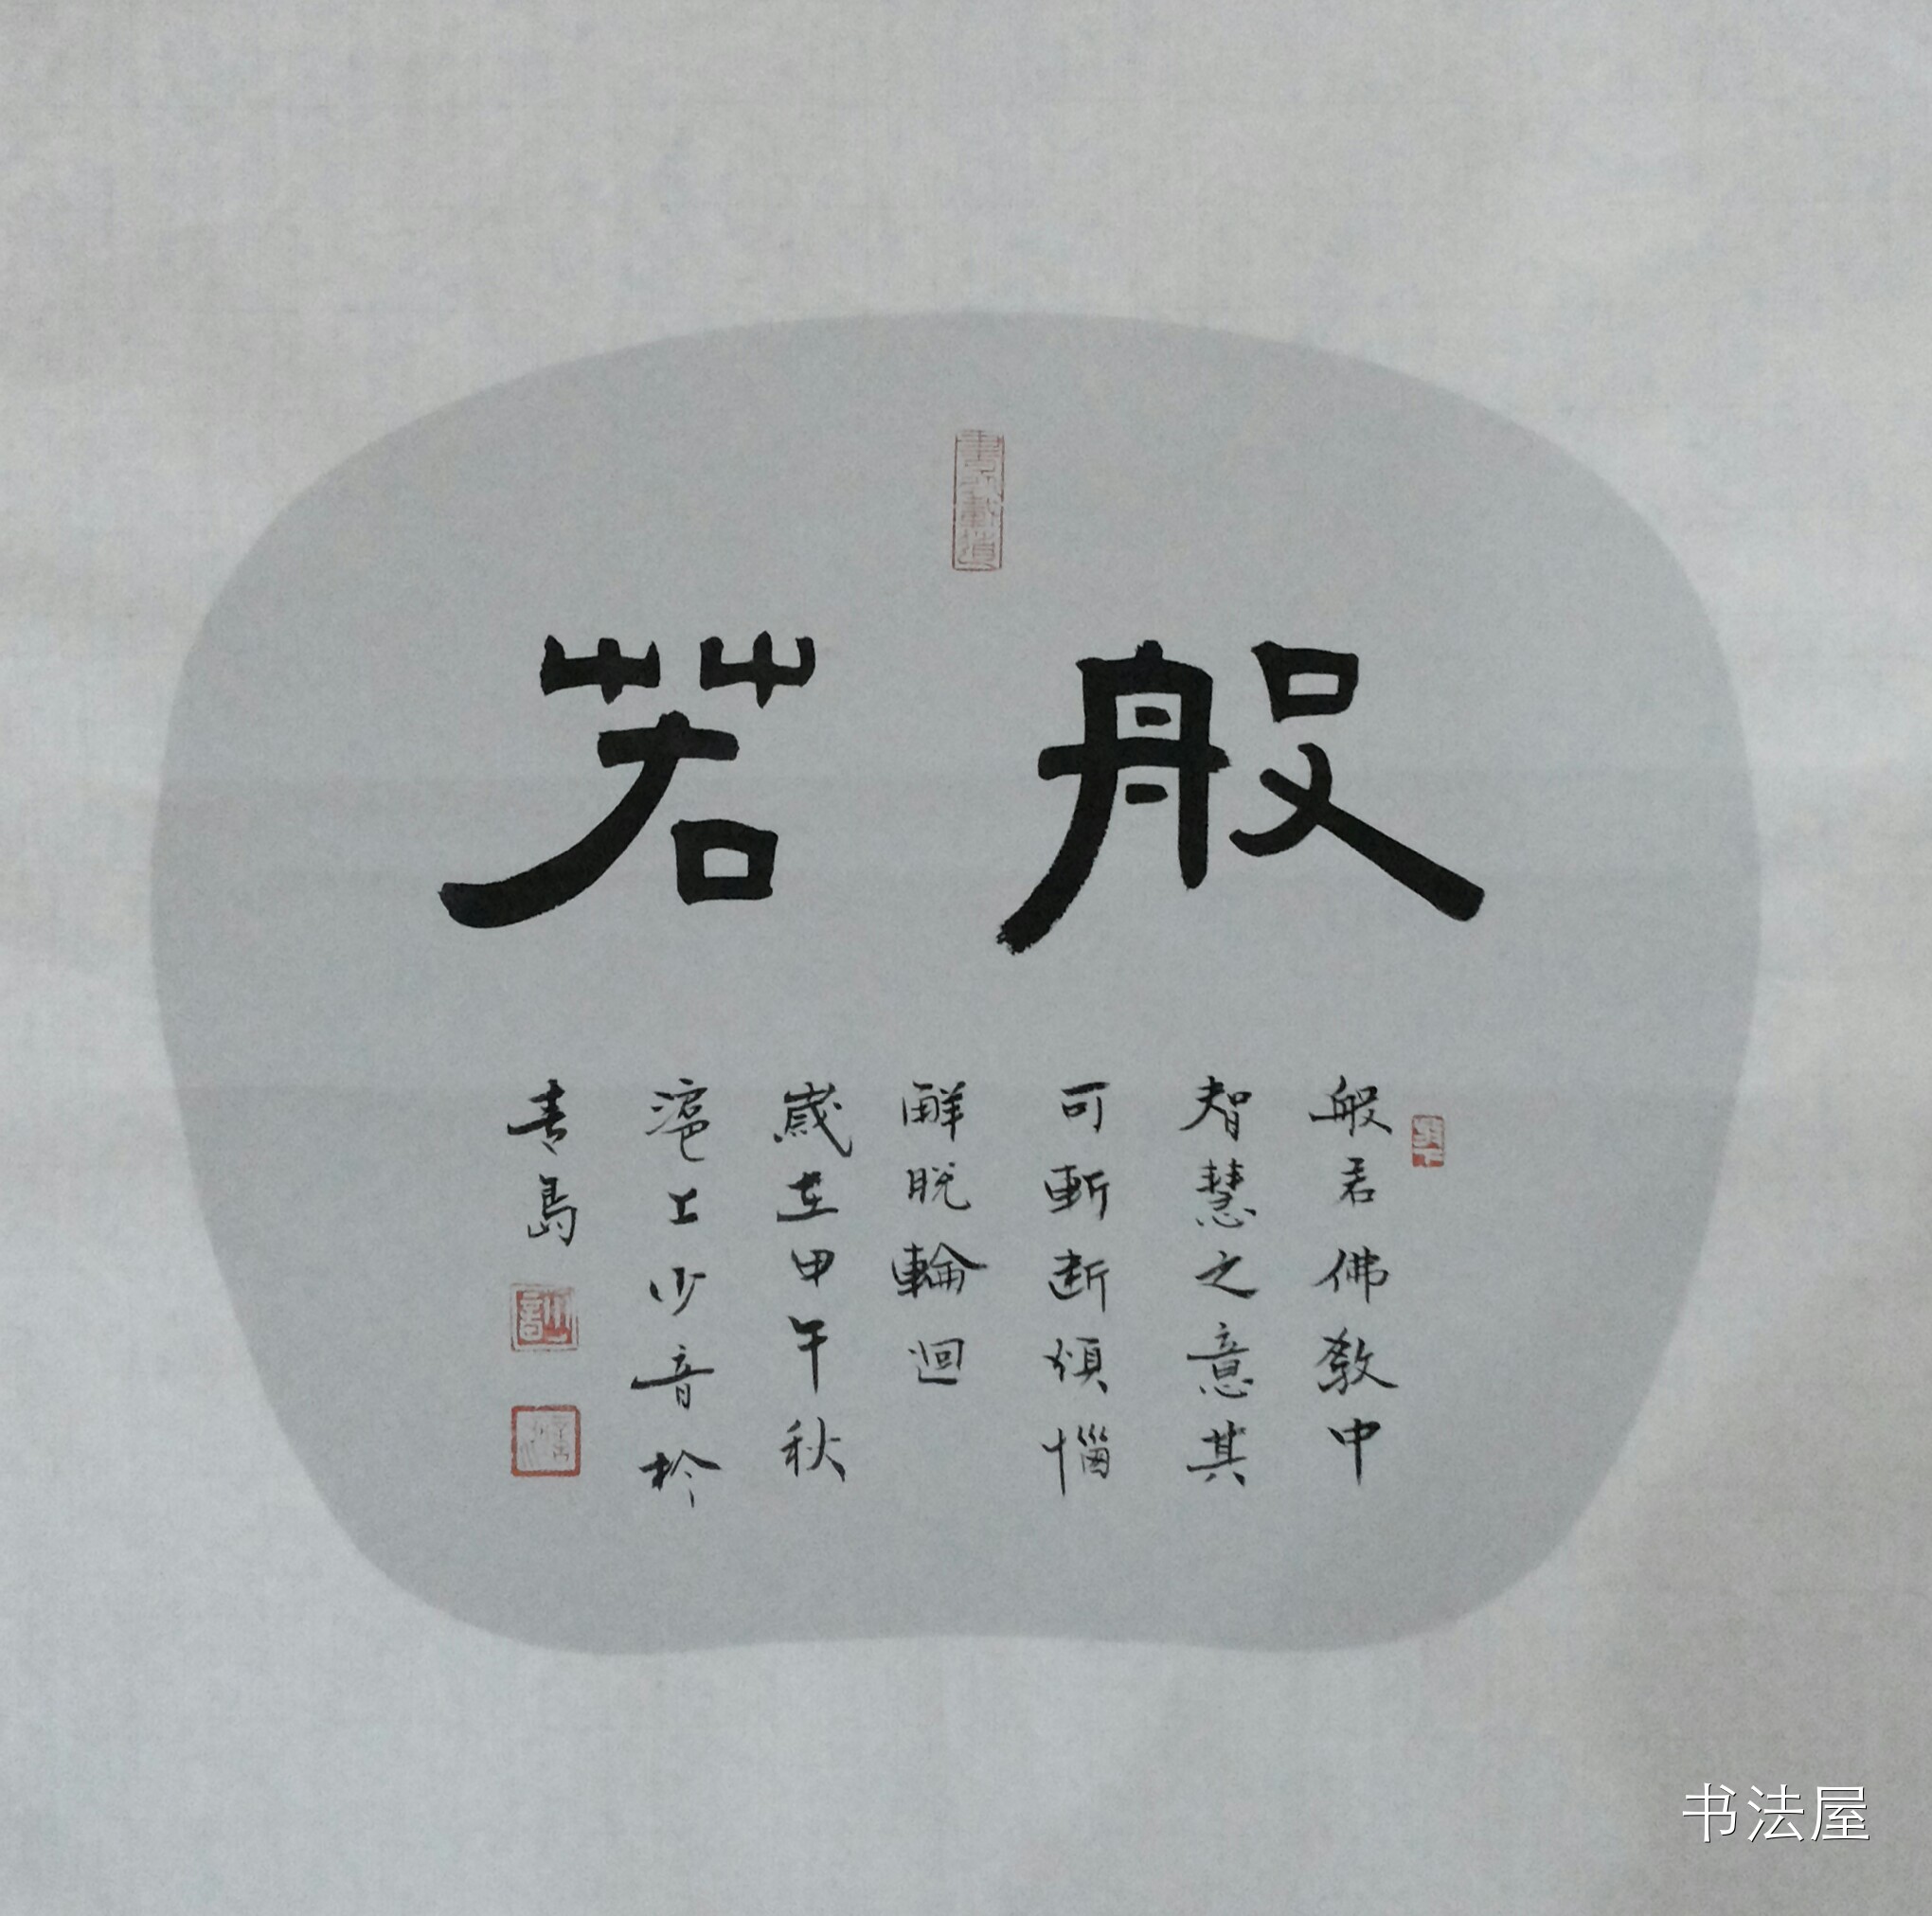 般若
般若佛教中
智慧之意其
可斬断煩惱
解脱輪迴
歲在甲午秋
滬上少音於
青島
书法屋